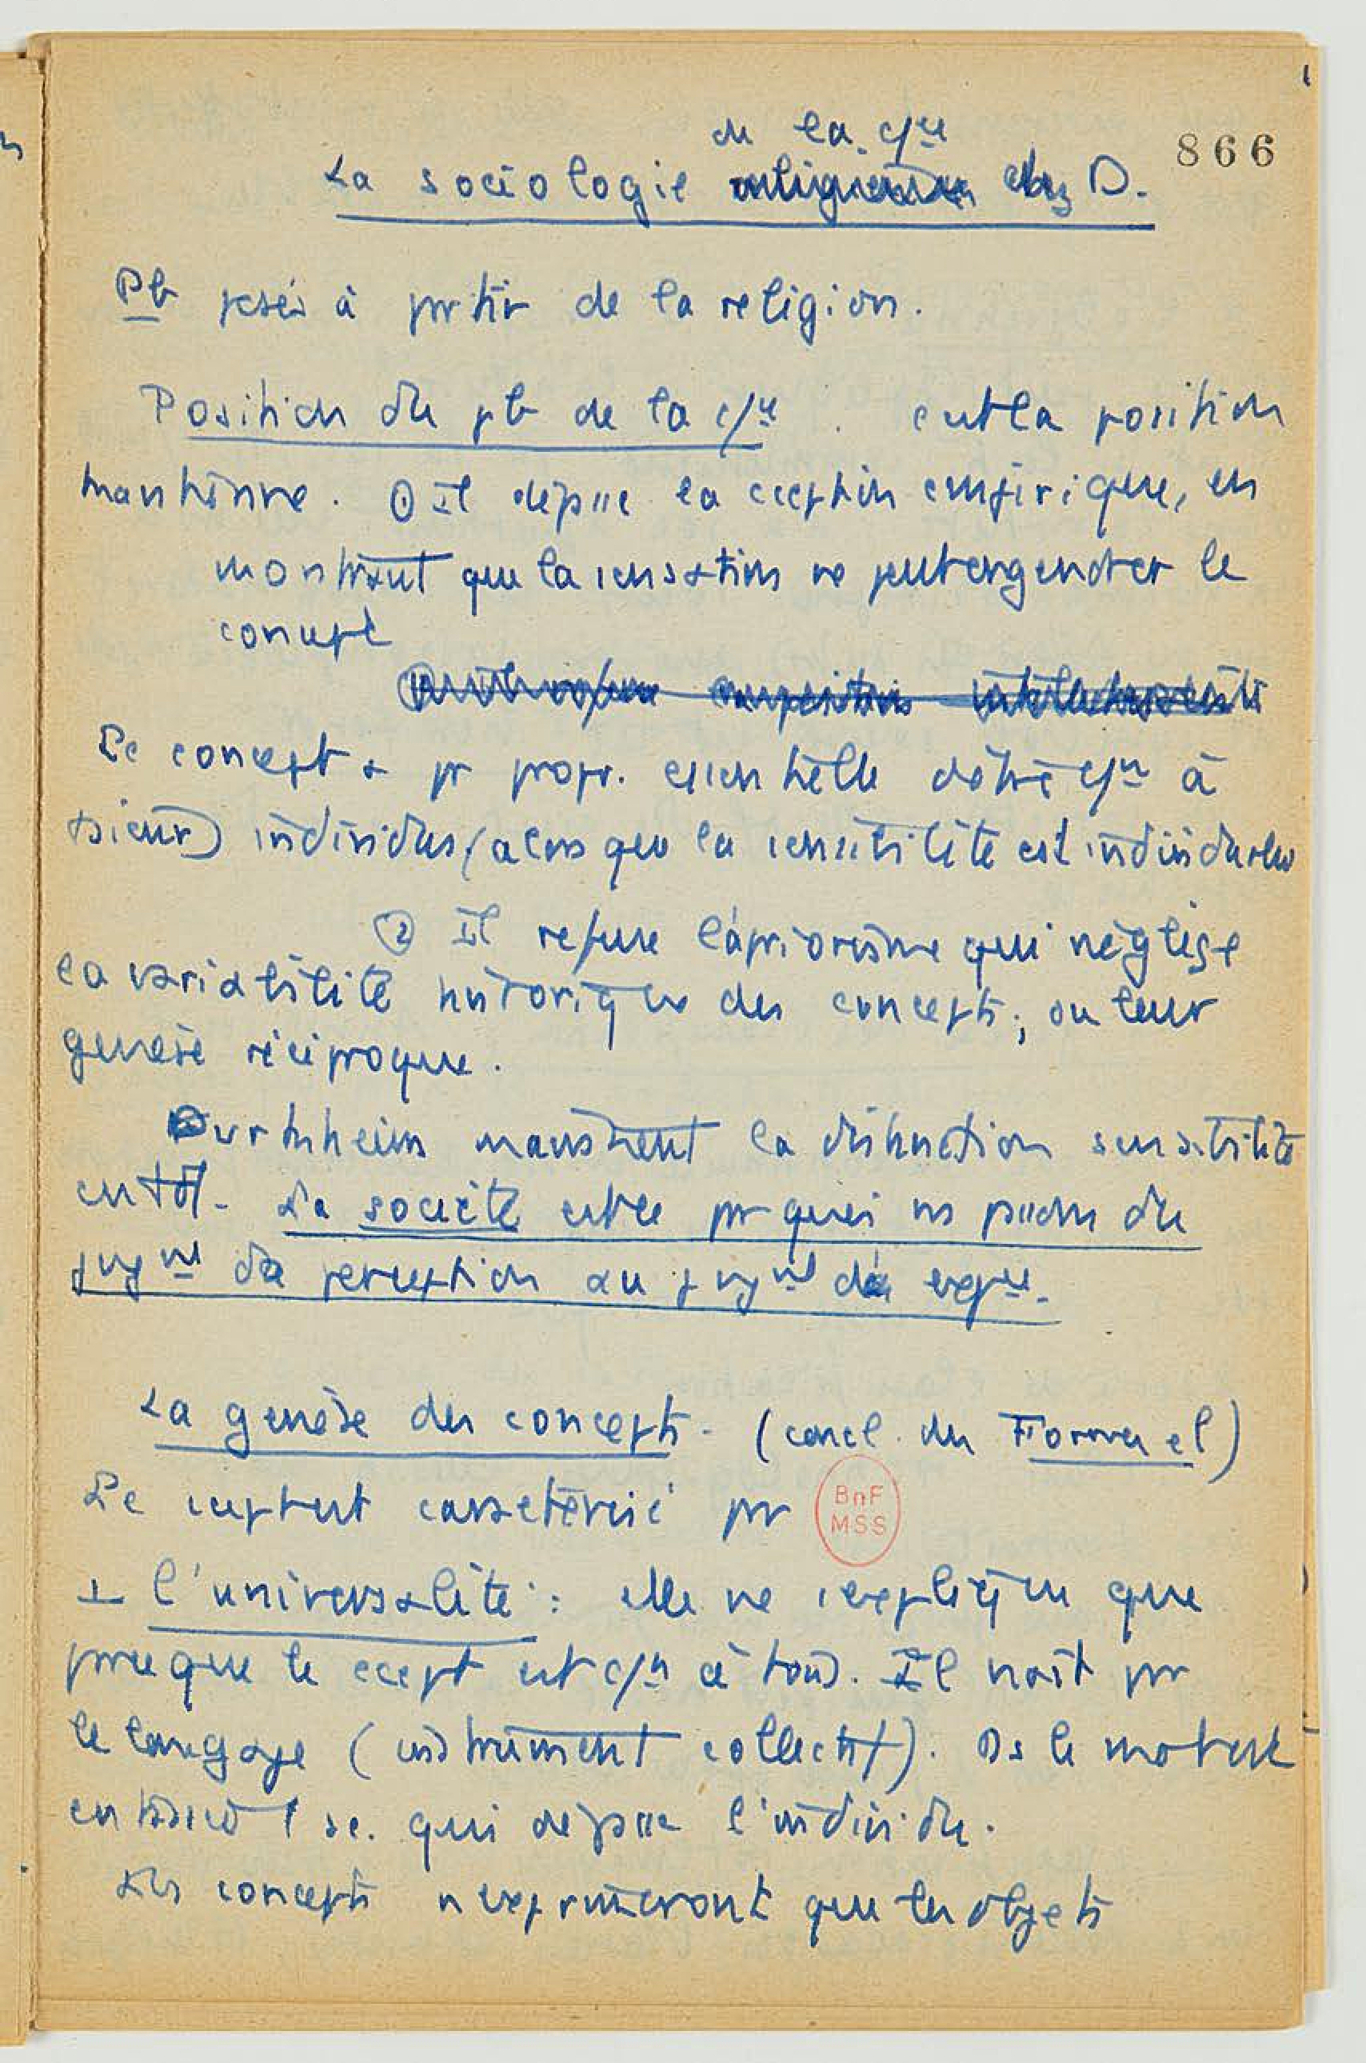 866
de la c/ce
La sociologie chez D.
Pb posé à partir de la religion.
Position du pb de la c/ce : c'est la position
kantienne. ① Il dépasse la cception empirique, en
montrant que la sensation ne peut engendrer le
concept
Le concept a pr propr. essentielle d'être c/n à
plsieurs individus (alors que la sensibilité est individuelle
② Il refuse l'apriorisme qui néglige
la variabilité historique des concepts, ou leur
genèse réciproque.
Durkheim maintient la distinction sensibilité
entdt. La société est ce pr quoi ns passons du
jugmt de perception au jugmt de expce.
La genèse des concepts. (concl. des Formes el)
Le cept est caractérisé pr
BnF
MSS
1 l'universalité : elle ne s'explique que
pce que le ccept est c/n à tous. Il naît pr
le langage (instrument collectif). Ds le mot est
qui dépasse l'individu.
Les concepts n'exprimeront que les objets